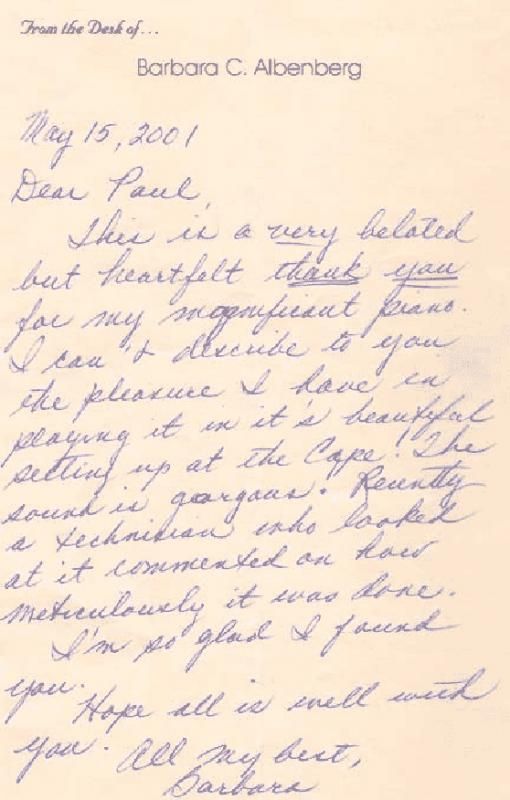 From the Desk of...
Barbara C. Albenberg
May 15, 2001
Dear Paul,
This is a very belated
but heartfelt thank you
for my magnificant piano.
I can't describe to you
the pleasure I have in
playing it in it's beautiful
setting up at the Cape! The
sound is gorgous. Recently
a technician who looked
at it commented on how
meticulously it was done.
I'm so glad I found
you.
Hope all is well with
you. All my best,
Barbara